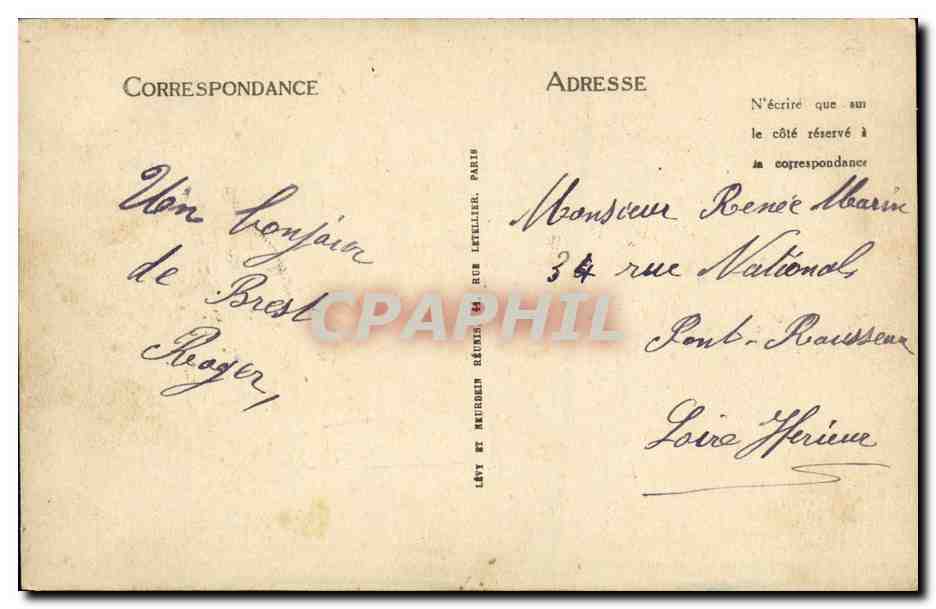 CORRESPONDANCE
Un bonjour
de Brest
Roger,
LÉVY ET NEURDEIN RÉUNIS, 44 RUE LETELLIER, PARIS
ADRESSE
N'écrire que sur
le côté réservé à
la correspondance
Monsieur Renée Marin
34 rue National
Pont-Rousseau
Loire Iferieur
CPAPHIL